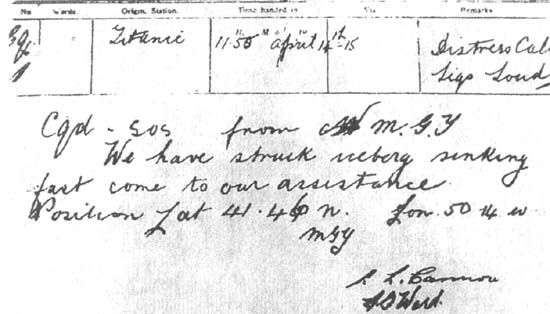 No Words. Origin. Station. Time handed in Via Remarks
Titanic 11:50 April 14th-15 Distress Call
Sigs Loud
Cqd - SOS from M.G.Y
We have struck iceberg sinking
fast come to our assistance.
Position Lat 41.46 n. Lon. 50.14 w
MGY